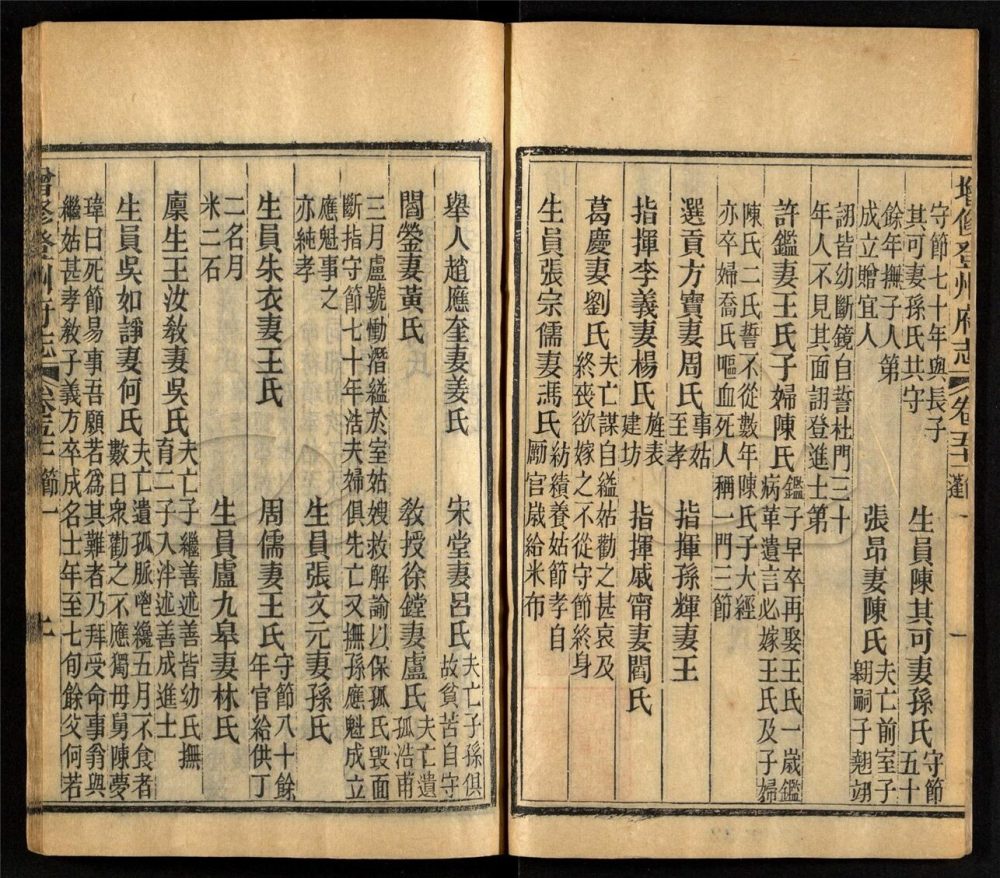 增修登州府志 卷五十二 一
守節七十年與長子
其可妻孫氏共守
生員陳其可妻孫氏
守節
五十
餘年撫子人第
成立贈宜人
張昂妻陳氏
夫亡前室子
翱嗣子翹翊
詡皆幼斷鏡自誓杜門三十
年人不見其面詡登進士第
許鑑妻王氏子婦陳氏
鑑子早卒再娶王氏一歲鑑
病革遺言必嫁王氏及子婦
陳氏二氏誓不從數年陳氏子大經
亦卒婦喬氏嘔血死人稱一門三節
選貢方寶妻周氏
事姑
至孝
指揮孫輝妻王
指揮李義妻楊氏
旌表
建坊
指揮戚甯妻閻氏
葛慶妻劉氏
夫亡謀自縊姑勸之甚哀及
終喪欲嫁之不從守節終身
生員張宗儒妻馮氏
紡績養姑節孝自
勵官歲給米布
舉人趙應奎妻姜氏
宋堂妻呂氏
夫亡子孫俱
故貧苦自守
閻鎣妻黃氏
敎授徐鏜妻盧氏
夫亡遺
孤浩甫
三月盧號慟潛縊於室姑嫂救解諭以保孤氏毀面
斷指守節七十年浩夫婦俱先亡又撫孫應魁成立
應魁事之
亦純孝
生員張文元妻孫氏
生員朱衣妻王氏
周儒妻王氏
守節八十餘
年官給供丁
二名月
米二石
生員盧九皋妻林氏
廩生王汝敎妻吳氏
夫亡子繼善述善皆幼氏撫
育二子入泮述善成進士
生員吳如諍妻何氏
夫亡遺孤脈纔五月不食者
數日衆勸之不應獨母舅陳夢
瑋曰死節易事吾願若爲其難者乃拜受命事翁與
繼姑甚孝敎子義方卒成名士年至七旬餘父何若
增修登州府志 卷五十二 節一